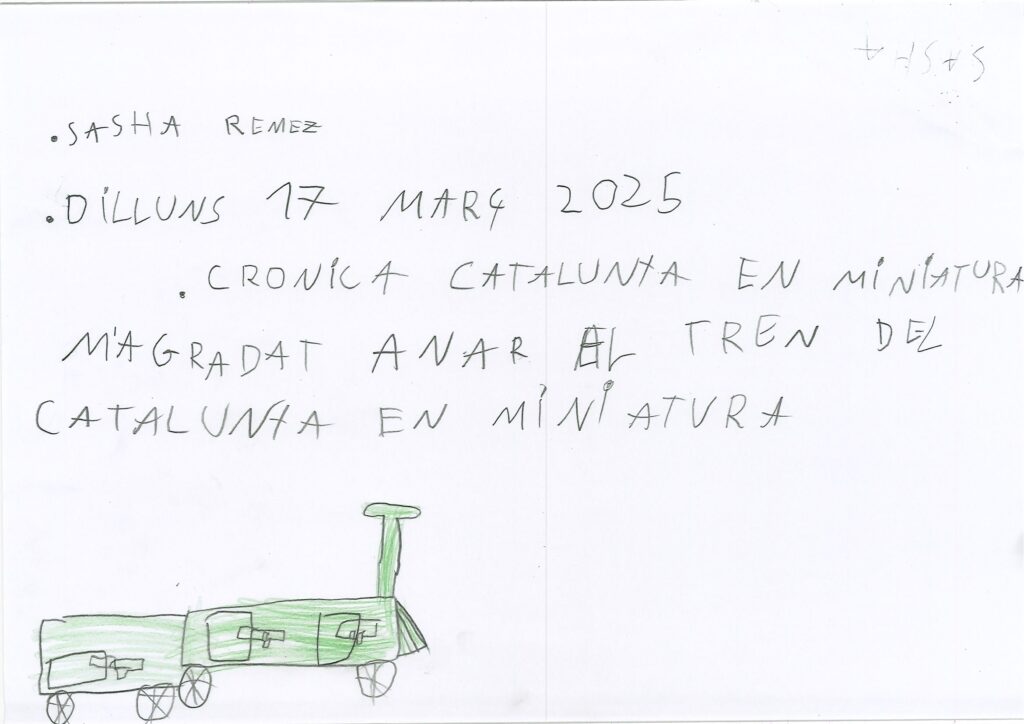 SASHA
.SASHA REMEZ
.DiLLUNS 17 MARÇ 2025
.CRONiCA CATALUNYA EN MiNiATURA
M'AGRADAT ANAR EL TREN DEL
CATALUNYA EN MiNiATURA